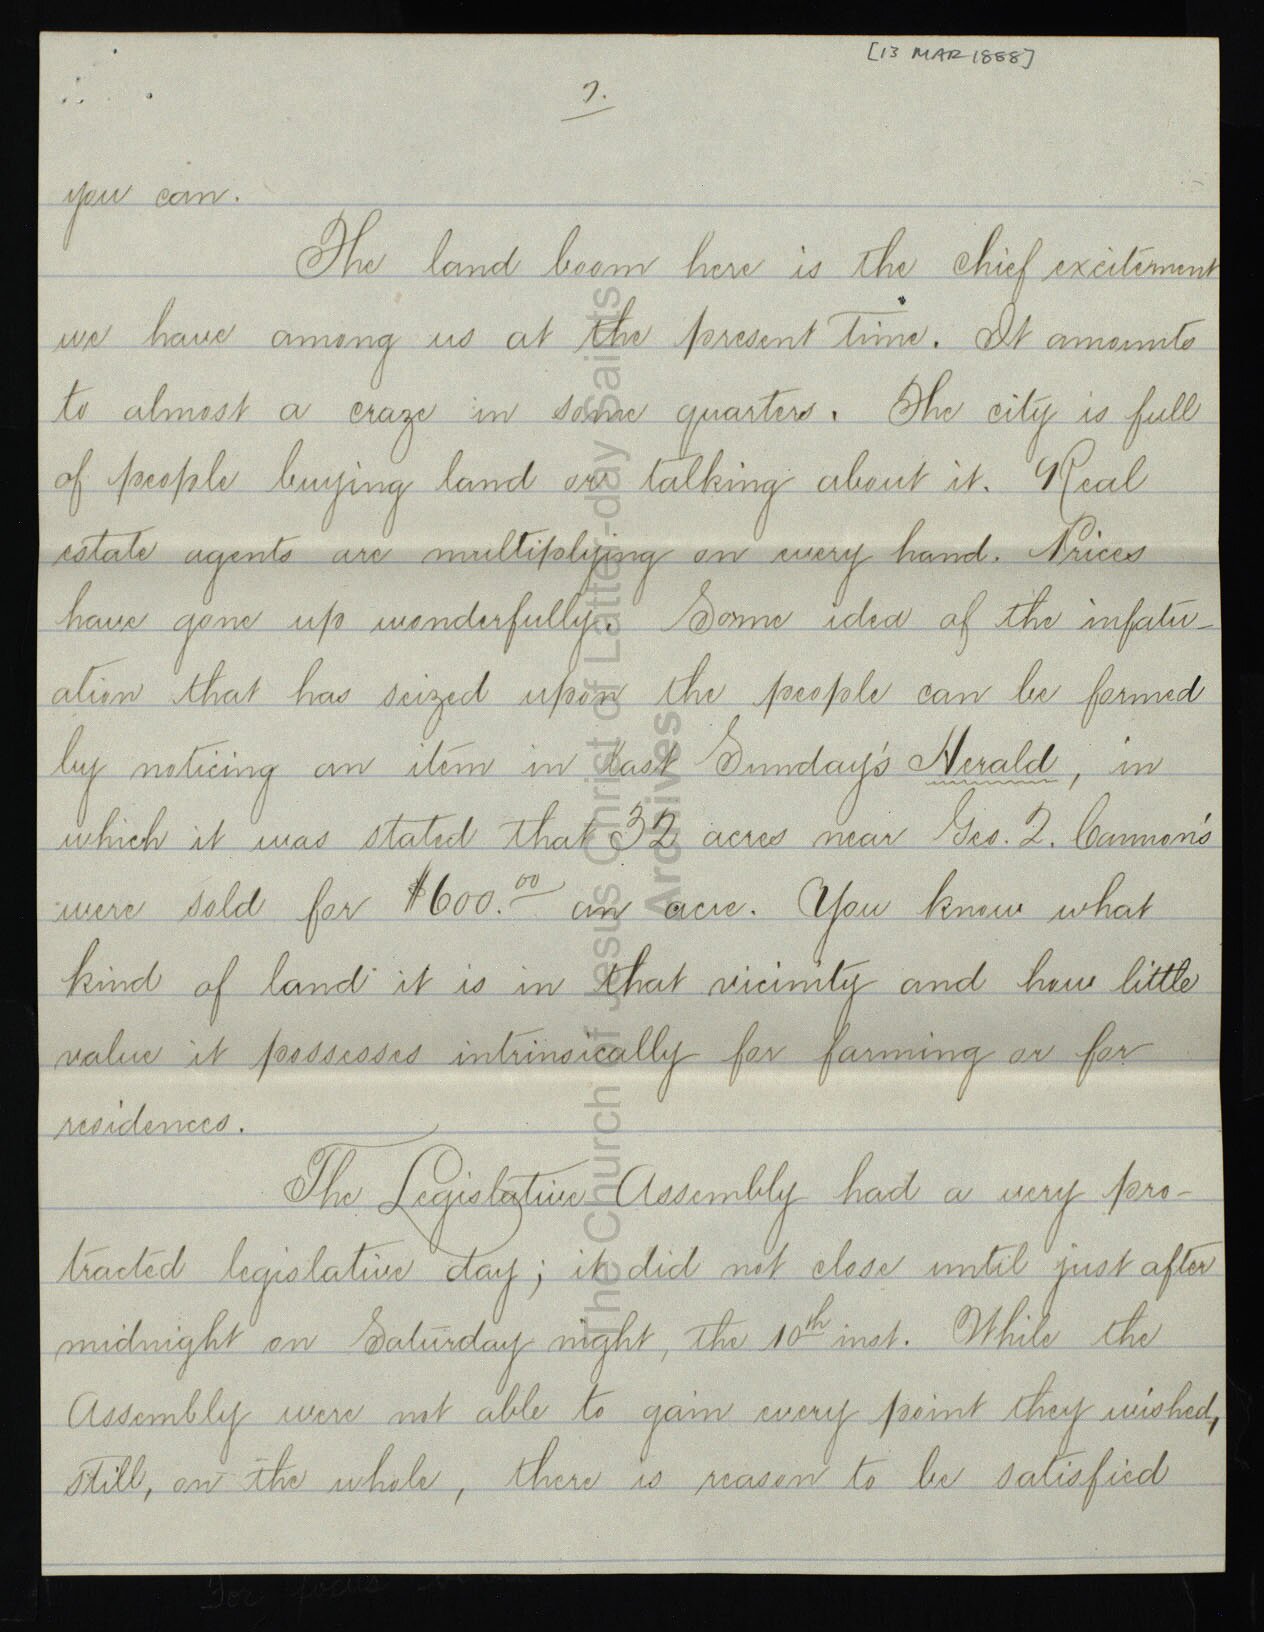 [13 MAR 1888]
7.
you can.
The land boom here is the chief excitement
we have among us at the present time. It amounts
to almost a craze in some quarters. The city is full
of people buying land or talking about it. Real
estate agents are multiplying on every hand. Prices
have gone up wonderfully. Some idea of the infatu-
ation that has seized upon the people can be formed
by noticing an item in last Sunday's Herald, in
which it was stated that 32 acres near Geo. Q. Cannon's
were sold for $600.00 an acre. You know what
kind of land it is in that vicinity and how little
value it possesses intrinsically for farming or for
residences.
The Legislative Assembly had a very pro-
tracted legislative day; it did not close until just after
midnight on Saturday night, the 10th inst. While the
Assembly were not able to gain every point they wished,
still, on the whole, there is reason to be satisfied
The Church of Jesus Christ of Latter-day Saints
Archives